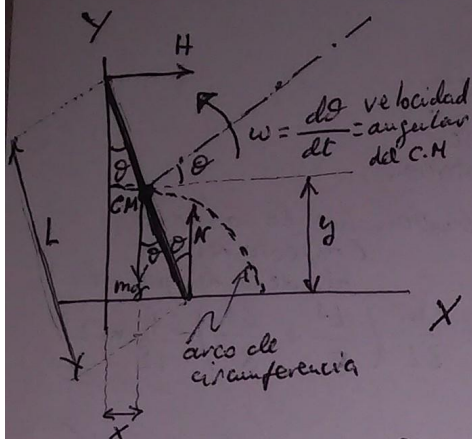 Y
H
ω = dθ/dt = velocidad angular del C.M
θ
θ
CM
L
θ
θ
N
y
mg
X
arco de
circumferencia
x